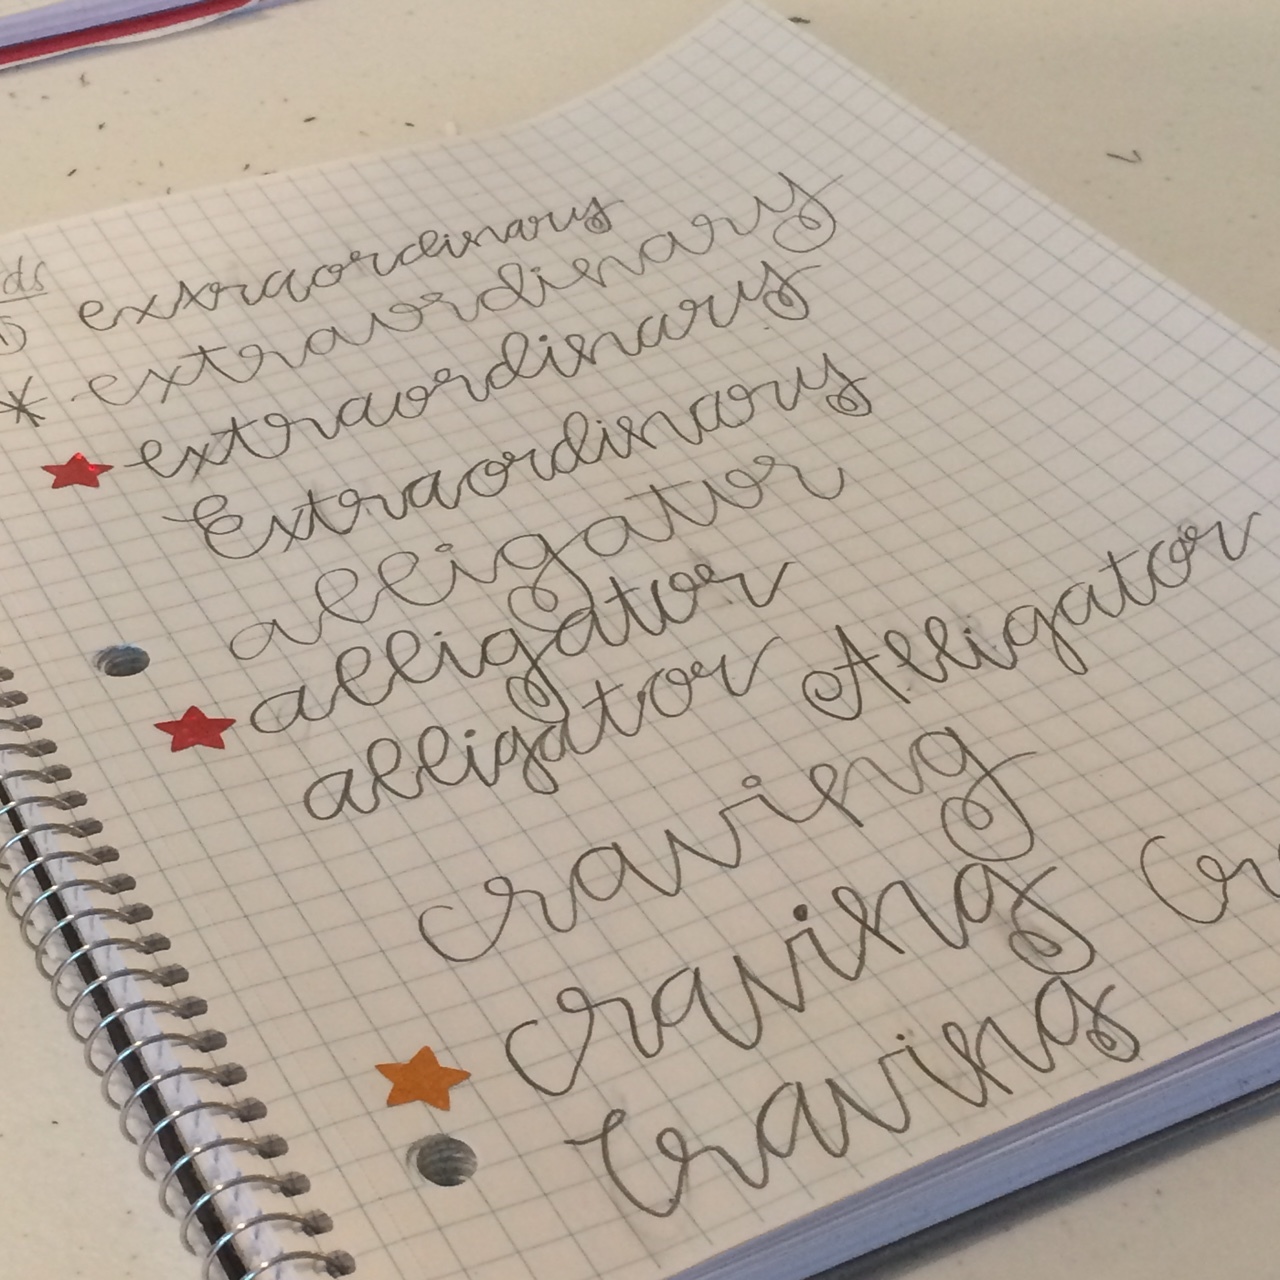 ds
1) extraordinary
* extraordinary
extraordinary
Extraordinary
alligator
alligator
alligator Alligator
craving
craving Cr
Craving